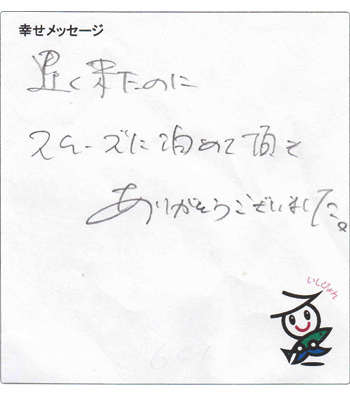 幸せメッセージ
遅く来たのに
スムーズに泊めて頂き
ありがとうございました。
いしぴょん